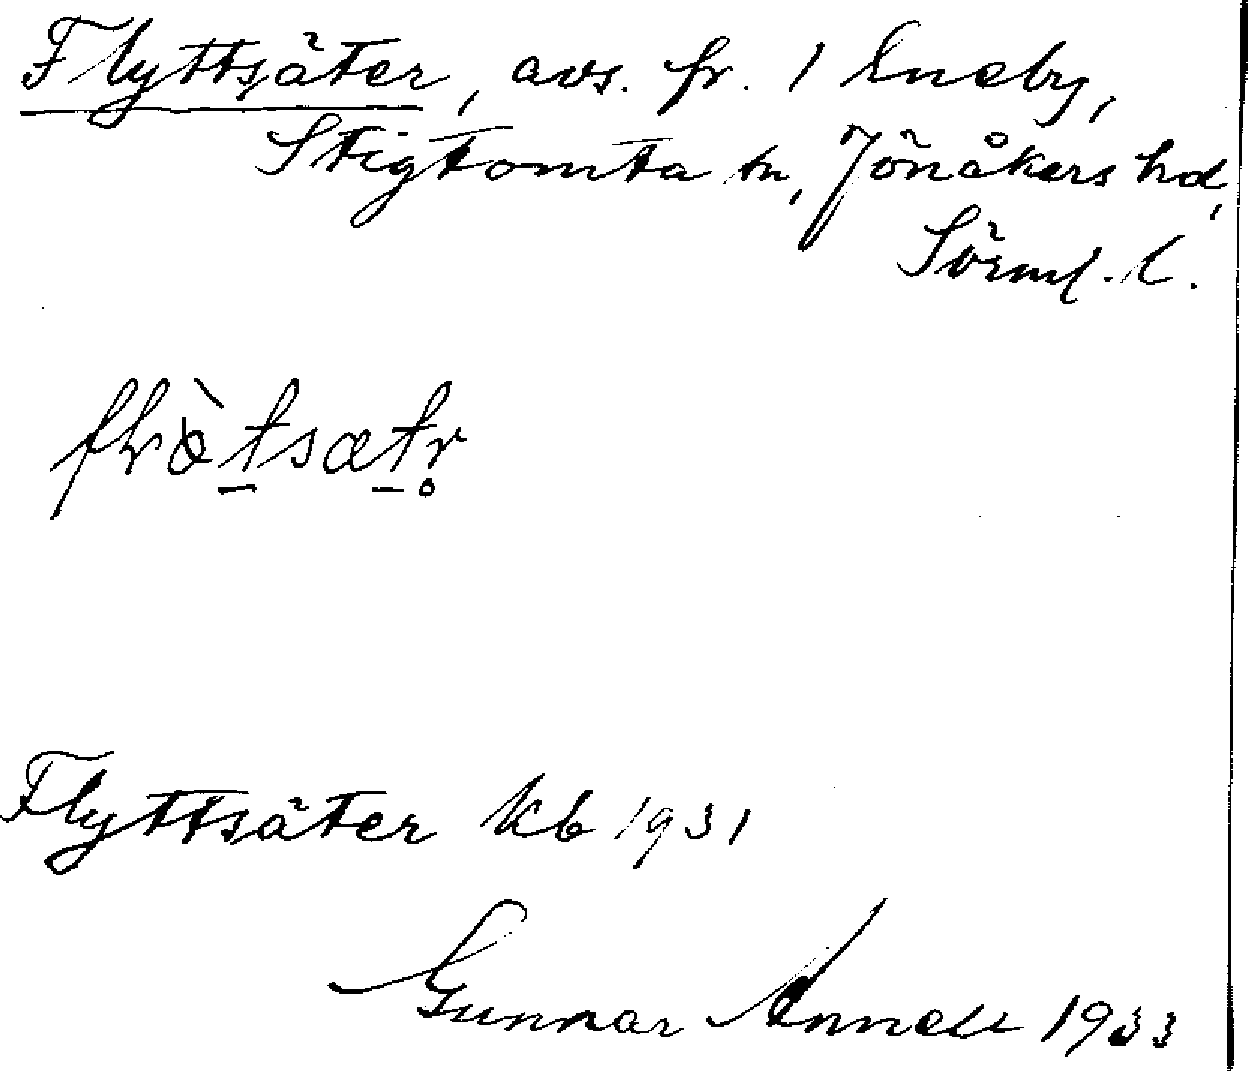 Flyttsäter, avs. fr. 1 Eneby,
Stigtomta sn, Jönåkers hd,
Sörml. l.
Flyttsäter kb 1931
Gunnar Annell 1933